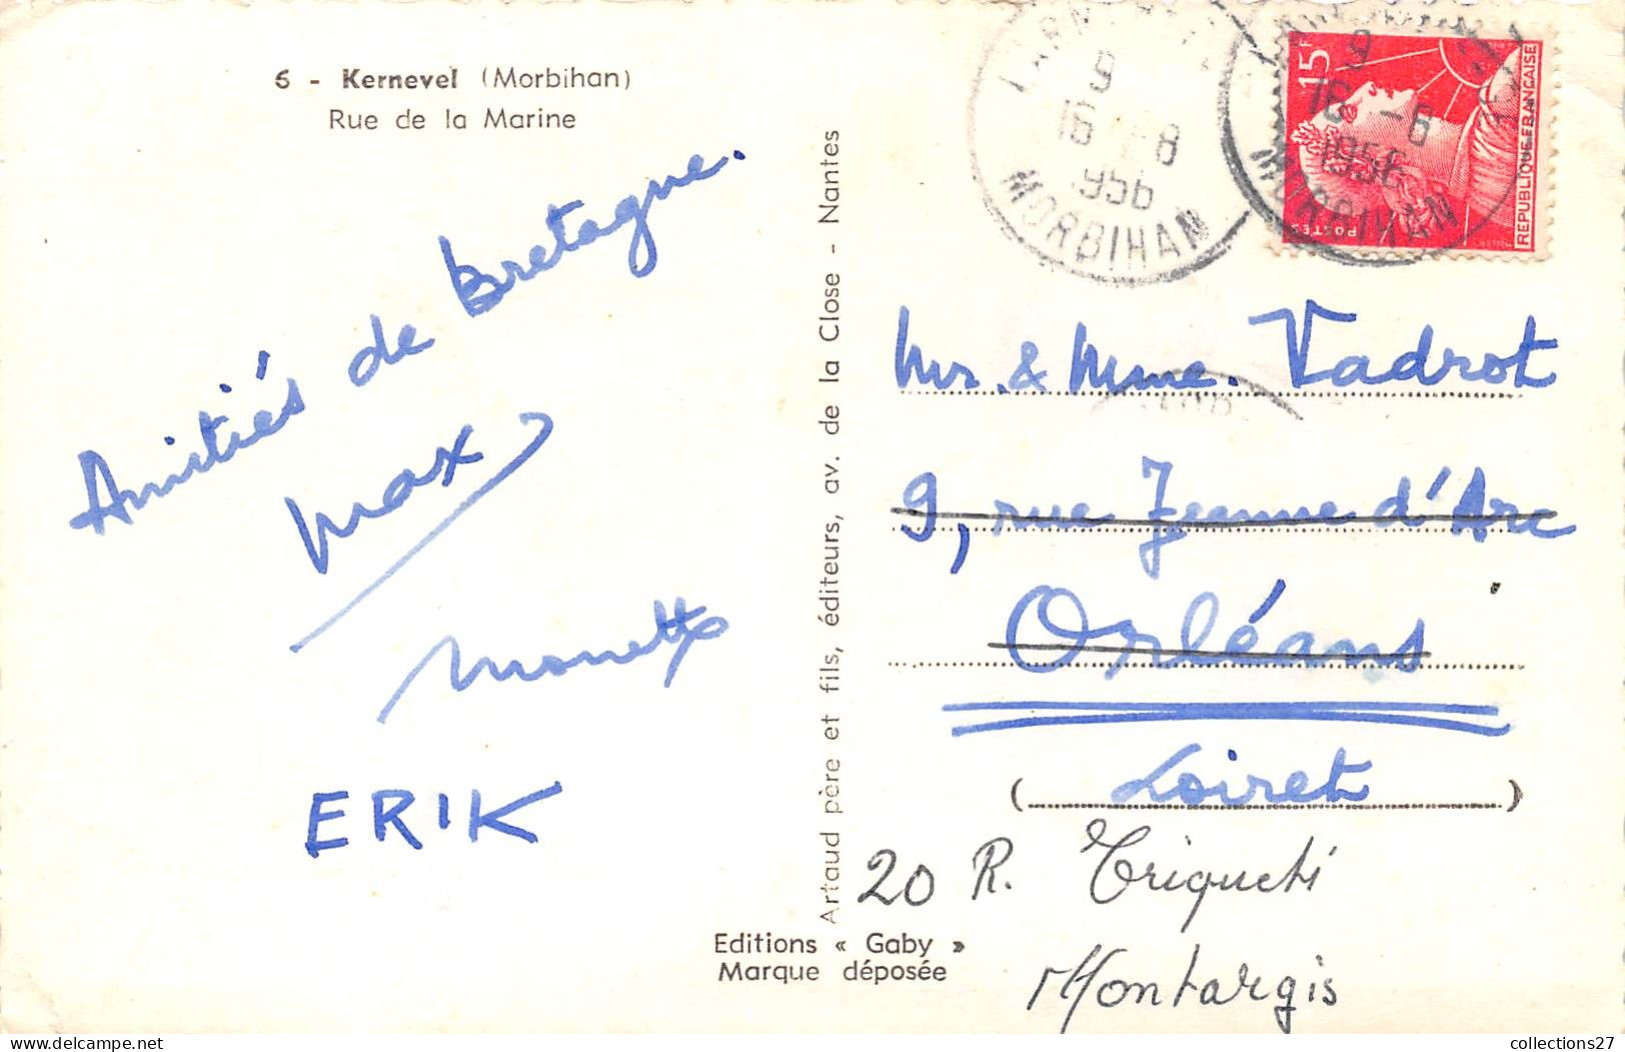 6 - Kernevel (Morbihan)
Rue de la Marine
Amitiés de Bretagne.
Max
Monette
ERIK
Artaud père et fils, éditeurs, av. de la Close - Nantes
Editions « Gaby »
Marque déposée
9
16 -8
1956
MORBIHAN
9
16 -8
1956
MORBIHAN
15F
POSTES
REPUBLIQUE FRANÇAISE
Mr. & Mme. Vadrot
9, rue Jeanne d'Arc
Orléans
(Loiret)
20 R. Triqueti
Montargis
collections27